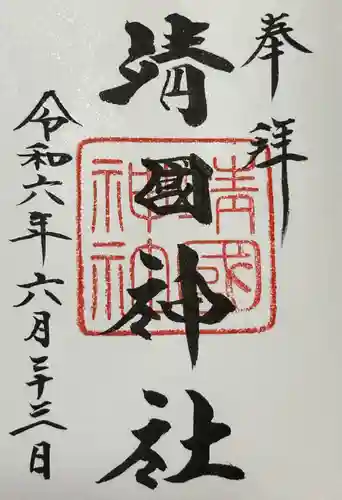 奉拝
靖國神社
令和六年六月二十三日
靖國
神社